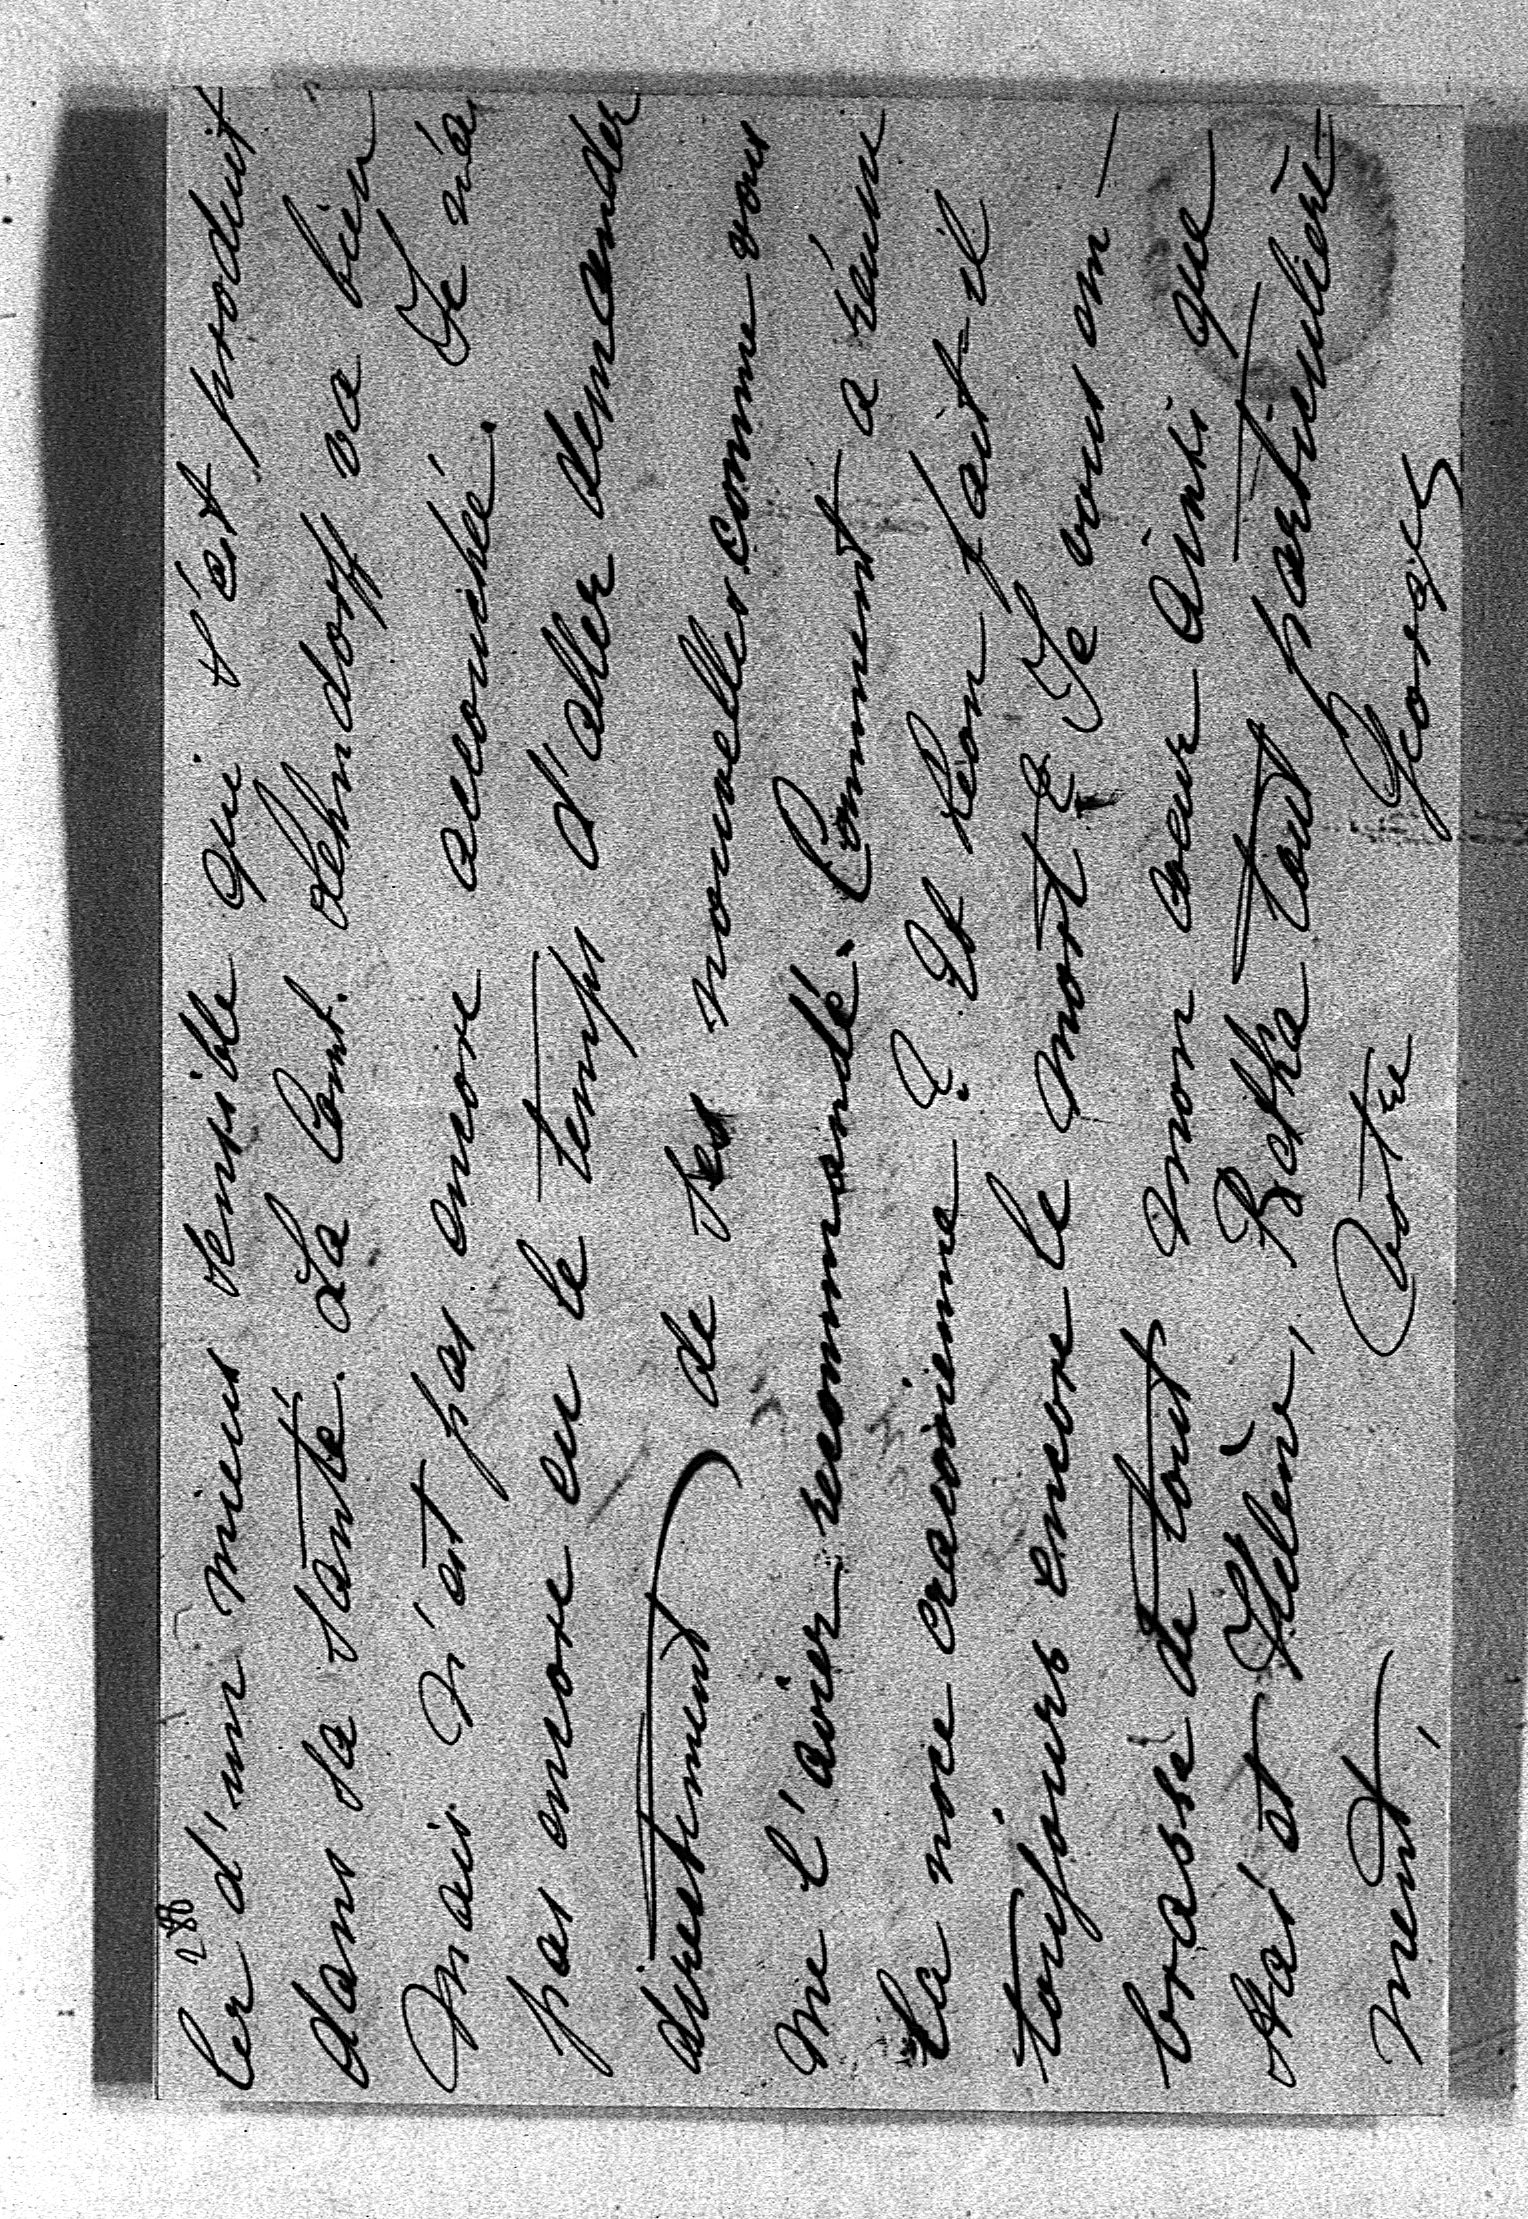 288
ler d'un mieux sensible qui s'est produit
dans sa santé. La Comt. Lehndorff va bien
mais n'est pas encore accouchée. Je n'ai
pas encore eu le temps d'aller demander
directement de ses nouvelles comme vous
me l'aviez recommandé. Comment a réussi
la noce cracovienne? Et Léon fait-il
toujours encore le mort? Je vous em-
brasse de tout mon cœur ainsi que
et Hélène, Betka tout particulière-
ment,
Votre Georges